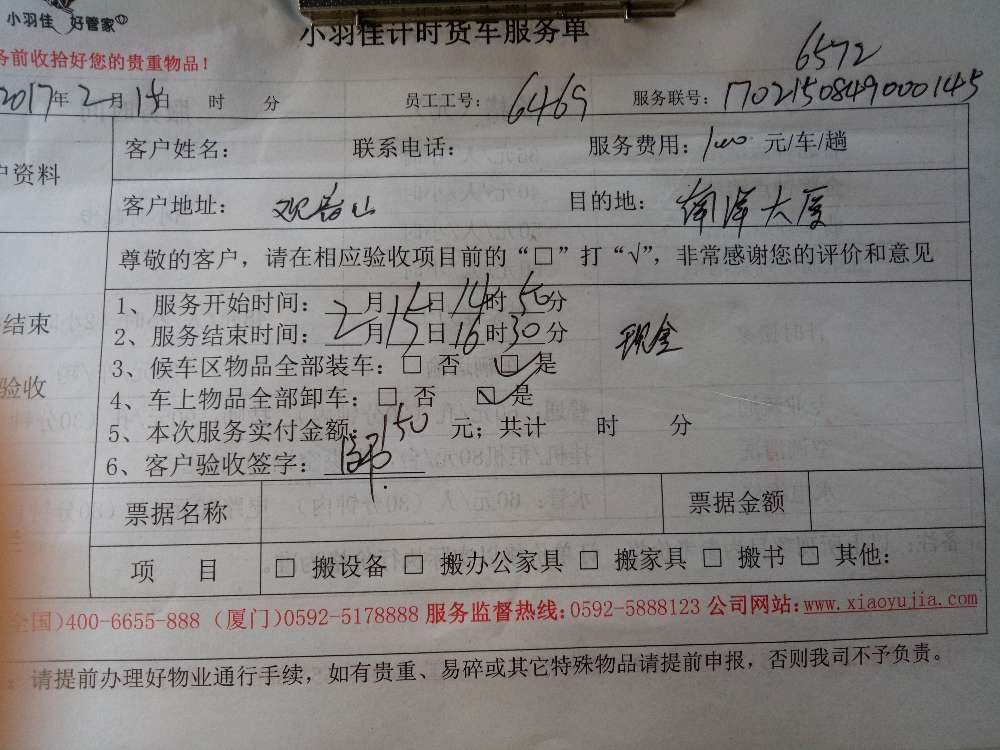 小羽佳 好管家
小羽佳计时货车服务单
务前收拾好您的贵重物品！
6572
2017年2月15日 时 分 员工工号：6469 服务联号：1702150849000145
户资料
客户姓名： 联系电话： 服务费用： 元/车/趟
客户地址：观音山 目的地：南洋大厦
尊敬的客户，请在相应验收项目前的“□”打“√”，非常感谢您的评价和意见
结束
验收
1、服务开始时间：2月15日14时50分
2、服务结束时间：2月15日16时30分
现金
3、候车区物品全部装车：□ 否 ☑ 是
4、车上物品全部卸车：□ 否 ☑ 是
5、本次服务实付金额：150元；共计 时 分
6、客户验收签字：
票据名称 票据金额
项 目 □ 搬设备 □ 搬办公家具 □ 搬家具 □ 搬书 □ 其他：
全国)400-6655-888 (厦门)0592-5178888 服务监督热线:0592-5888123 公司网站:www.xiaoyujia.com
：请提前办理好物业通行手续，如有贵重、易碎或其它特殊物品请提前申报，否则我司不予负责。